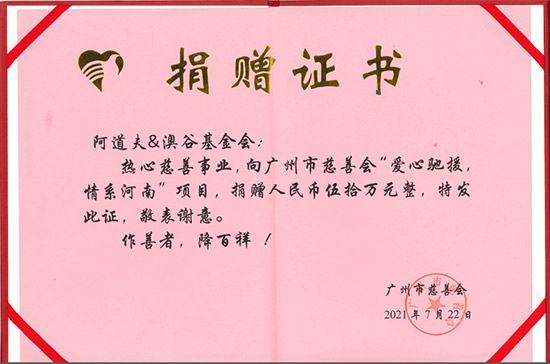 捐赠证书
阿道夫&澳谷基金会：
热心慈善事业，向广州市慈善会“爱心驰援，
情系河南”项目，捐赠人民币伍拾万元整，特发
此证，敬表谢意。
作善者，降百祥！
广州市慈善会
2021年7月22日